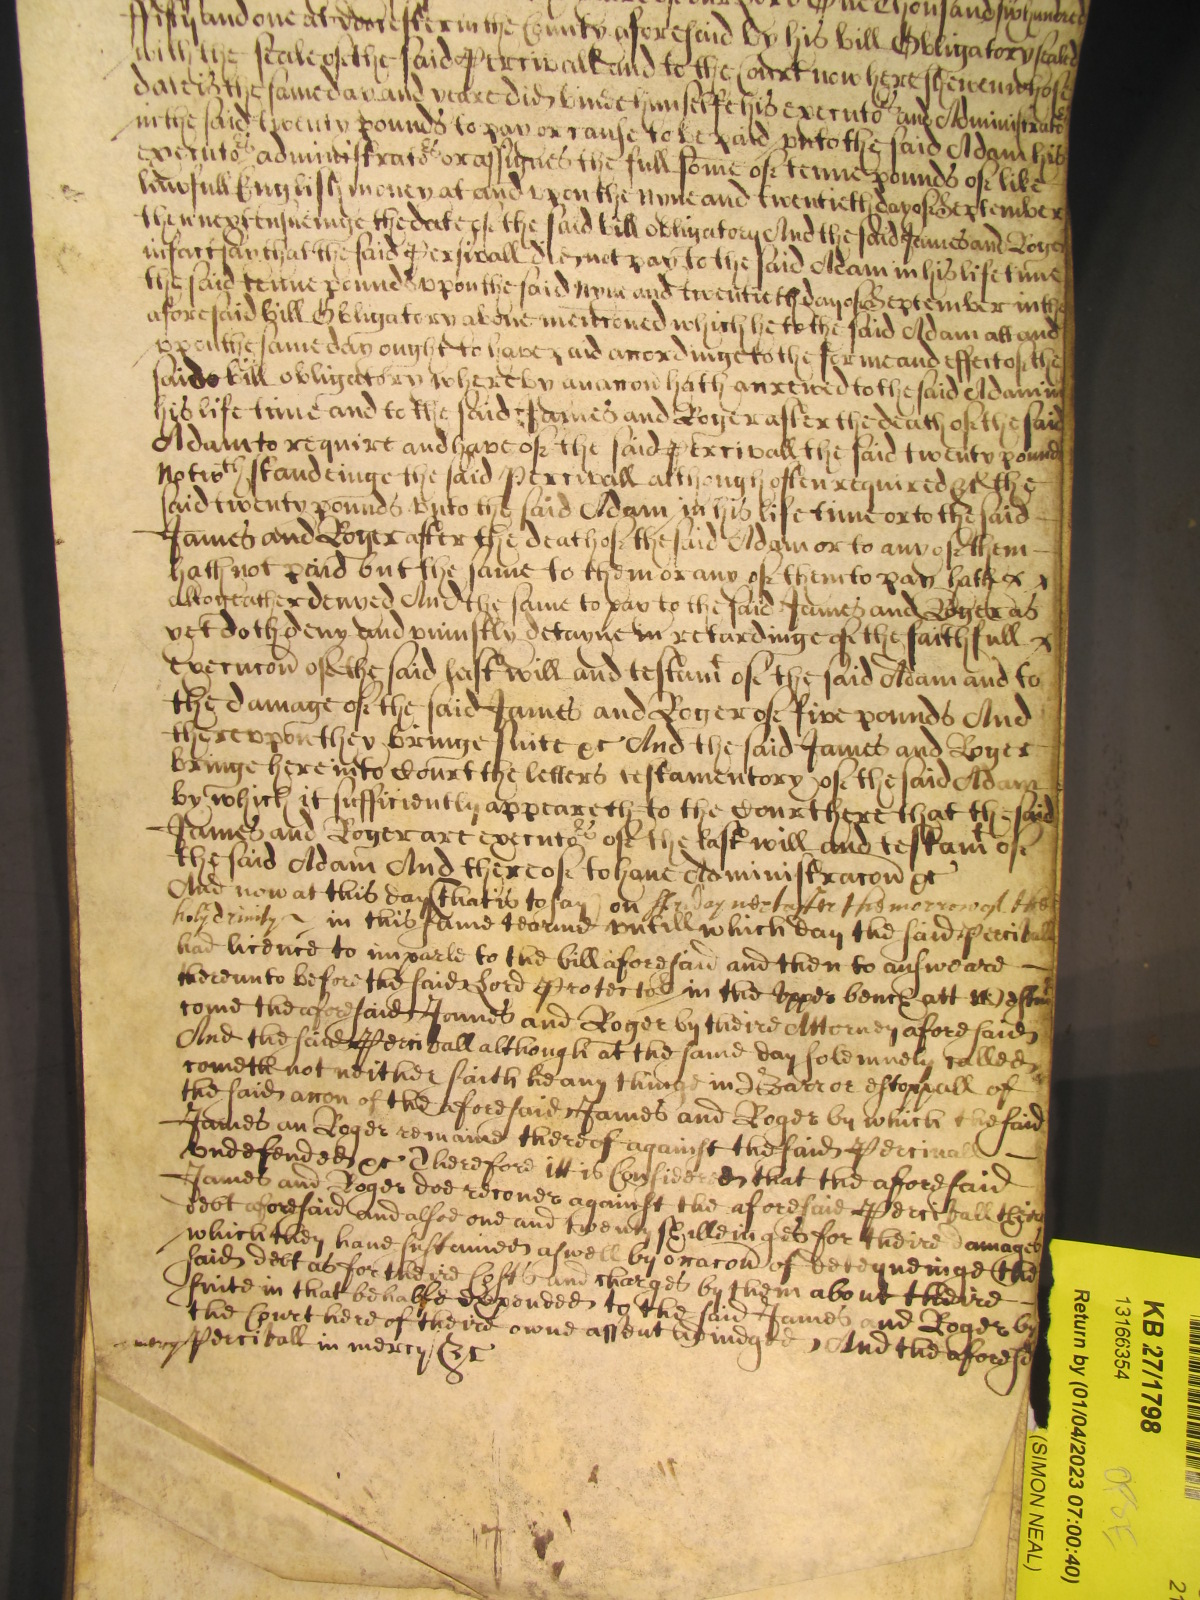 ffifty and one at Worcester in the County aforesaid by his bill Obligatory sealed
with the seale of the said Percivall and to the Court now here shewen whose
date is the same day and yeare did binde himselfe his executors and Administrators
in the said twenty pounds to pay or cause to be paid unto the said Adam his
executors administrators or assignes the full some of tenne pounds of like
lawfull English money at and upon the nyne and twentieth day of September
then next ensueinge the date of the said bill obligatory And the said James and Roger
in fact say that the said Persivall did not pay to the said Adam in his life time
the said tenne pounds upon the said nyne and twentieth day of September in the
aforesaid bill Obligatory above mencioned which he to the said Adam att and
upon the same day ought to have paid accordinge to the forme and effect of the
said bill obligatory whereby an accon hath accrewed to the said Adam in
his life time and to the said James and Roger after the death of the said
Adam to require and have of the said Percivall the said twenty pounds
Notwithstandeinge the said Percivall although often required the
said twenty pounds unto the said Adam in his life time or to the said
James and Roger after the death of the said Adam or to any of them
hath not paid but the same to them or any of them to pay hath x x
altogeather denyed And the same to pay to the said James and Roger as
yet doth deny and uniustly detayne in retardinge of the faithfull x
execucon of the said last will and testamt of the said Adam and to
the damage of the said James and Roger of five pounds And
thereupon they bringe suite &c And the said James and Roger
bringe here into Court the letters testamentory of the said Adam
by which it sufficiently appeareth to the Court here that the said
James and Roger are executors of the last will and testamt of
the said Adam And thereof to have Administracon &c
And now at this day (that is to say) on ffryday next after the morrow of the
holy Trinity in this same tearme untill which day the said Percivall
had licence to imparle to the bill aforesaid and then to answeare
thereunto before the said Lord Protector in the Upper bench att Westmr
come the aforesaid James and Roger by theire Attorney aforesaid
And the said Percivall although at the same day solemnely called
cometh not neither saith he any thinge in Barr or estoppall of
the said accon of the aforesaid James and Roger by which the said
James an Roger remaine thereof against the said Percivall
undefended &c Therefore itt is Considered that the aforesaid
James and Roger doe recover against the aforesaid Percivall their
debt aforesaid and alsoe one and twenty shilleinges for theire damages
which they have susteined aswell by occacon of deteyneinge the
said debt as for theire Costs and charges by them about theire
suite in that behalfe expended to the said James and Roger by
the Court here of theire owne assent adiudged And the aforesd
mercy Percivall in mercy &c
KB 27/1798
13166354
Return by (01/04/2023 07:00:40)
(SIMON NEAL)